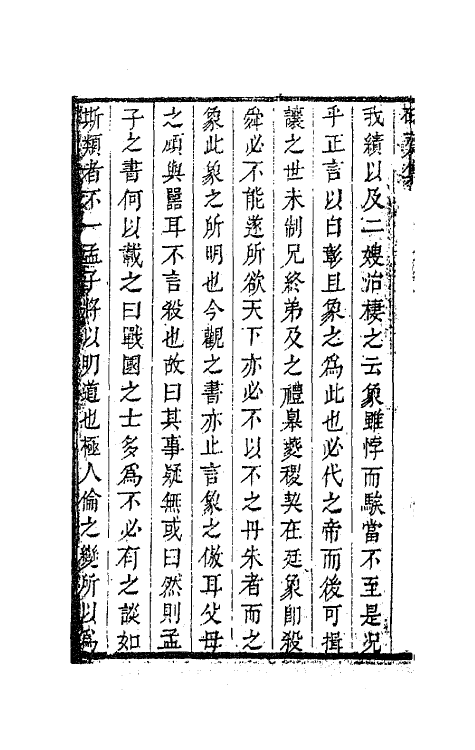 我績以及二嫂治棲之云象雖悖而騃當不至是况
乎正言以白彰且象之爲此也必代之帝而後可揖
讓之世未制兄終弟及之禮臯夔稷契在廷象即殺
舜必不能遂所欲天下亦必不以不之丹朱者而之
象此象之所明也今觀之書亦止言象之傲耳父母
之頑與嚚耳不言殺也故曰其事疑無或曰然則孟
子之書何以載之曰戰國之士多爲不必有之談如
斯類者不一孟子將以明道也極人倫之變所以爲